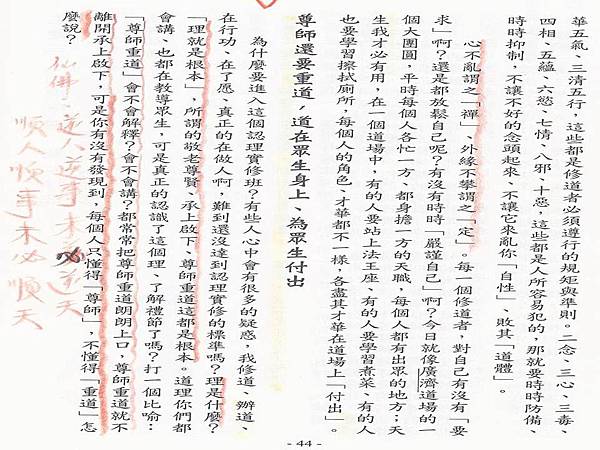 華五氣、三清五行，這些都是修道者必須遵行的規矩與準則。二念、三心、三毒、
四相、五蘊、六慾、七情、八邪、十惡，這些都是人所容易犯的，那就要時時防備、
時時抑制，不讓不好的念頭起來、不讓它來亂你「自性」、敗其「道體」。
心不亂謂之「禪」、外緣不攀謂之「定」。每一個修道者，對自己有沒有「要
求」啊？還是都放鬆自己呢？有沒有時時「嚴謹自己」啊？今日就像廣濟道場的一
個大團圓，平時每個人各忙一方、都身擔一方的天職，每個人都有出眾的地方；天
生我才必有用，在一個道場中，有的人要站上法王座、有的人要學習煮菜、有的人
也要學習擦拭廁所，每個人的角色、才華都不一樣，各盡其才華在道場上「付出」。
尊師還要重道，道在眾生身上、為眾生付出
為什麼要進入這個認理實修班？有些人心中會有很多的疑惑，我修道、辦道、
在行功、在了愿、真正的在做人啊，難到還沒達到認理實修的標準嗎？理是什麼？
「理就是根本」，所謂的敬老尊賢、承上啟下、尊師重道這都是根本。道理你們都
會講、也都在教導眾生，可是真正的認識了這個理、了解禮節了嗎？打一個比喻：
「尊師重道」會不會解釋？會不會講？都常常把尊師重道朗朗上口，尊師重道就不
離開承上啟下，可是你有沒有發現到，每個人只懂得「尊師」，不懂得「重道」怎
麼說？
仙佛 逆人逆事未必逆天
順人順事未必順天
- 44 -